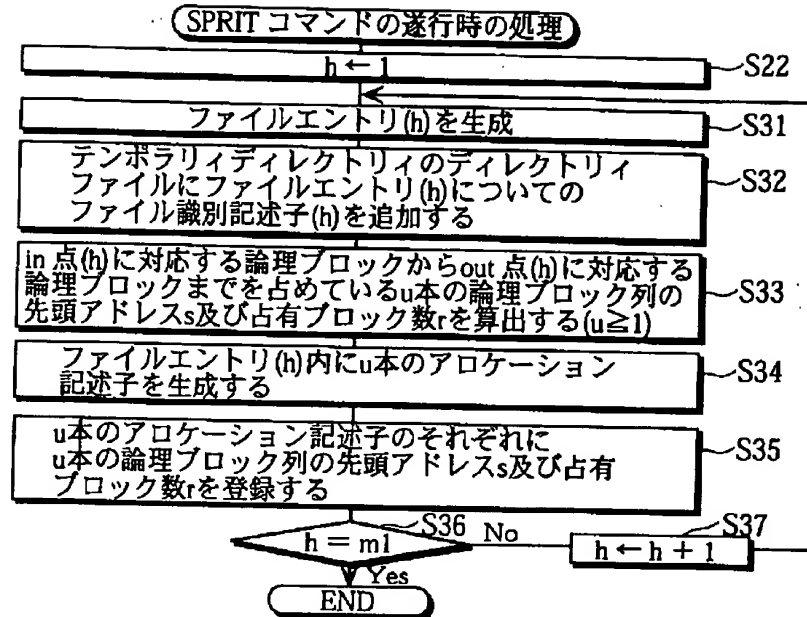 SPRIT コマンドの遂行時の処理
h ← 1
S22
ファイルエントリ(h)を生成
S31
テンポラリィディレクトリィのディレクトリィ
ファイルにファイルエントリ(h)についての
ファイル識別記述子(h)を追加する
S32
in 点(h)に対応する論理ブロックからout 点(h)に対応する
論理ブロックまでを占めているu本の論理ブロック列の
先頭アドレスs及び占有ブロック数rを算出する(u≧1)
S33
ファイルエントリ(h)内にu本のアロケーション
記述子を生成する
S34
u本のアロケーション記述子のそれぞれに
u本の論理ブロック列の先頭アドレスs及び占有
ブロック数rを登録する
S35
S36
h = m1
No
S37
h ← h + 1
Yes
END